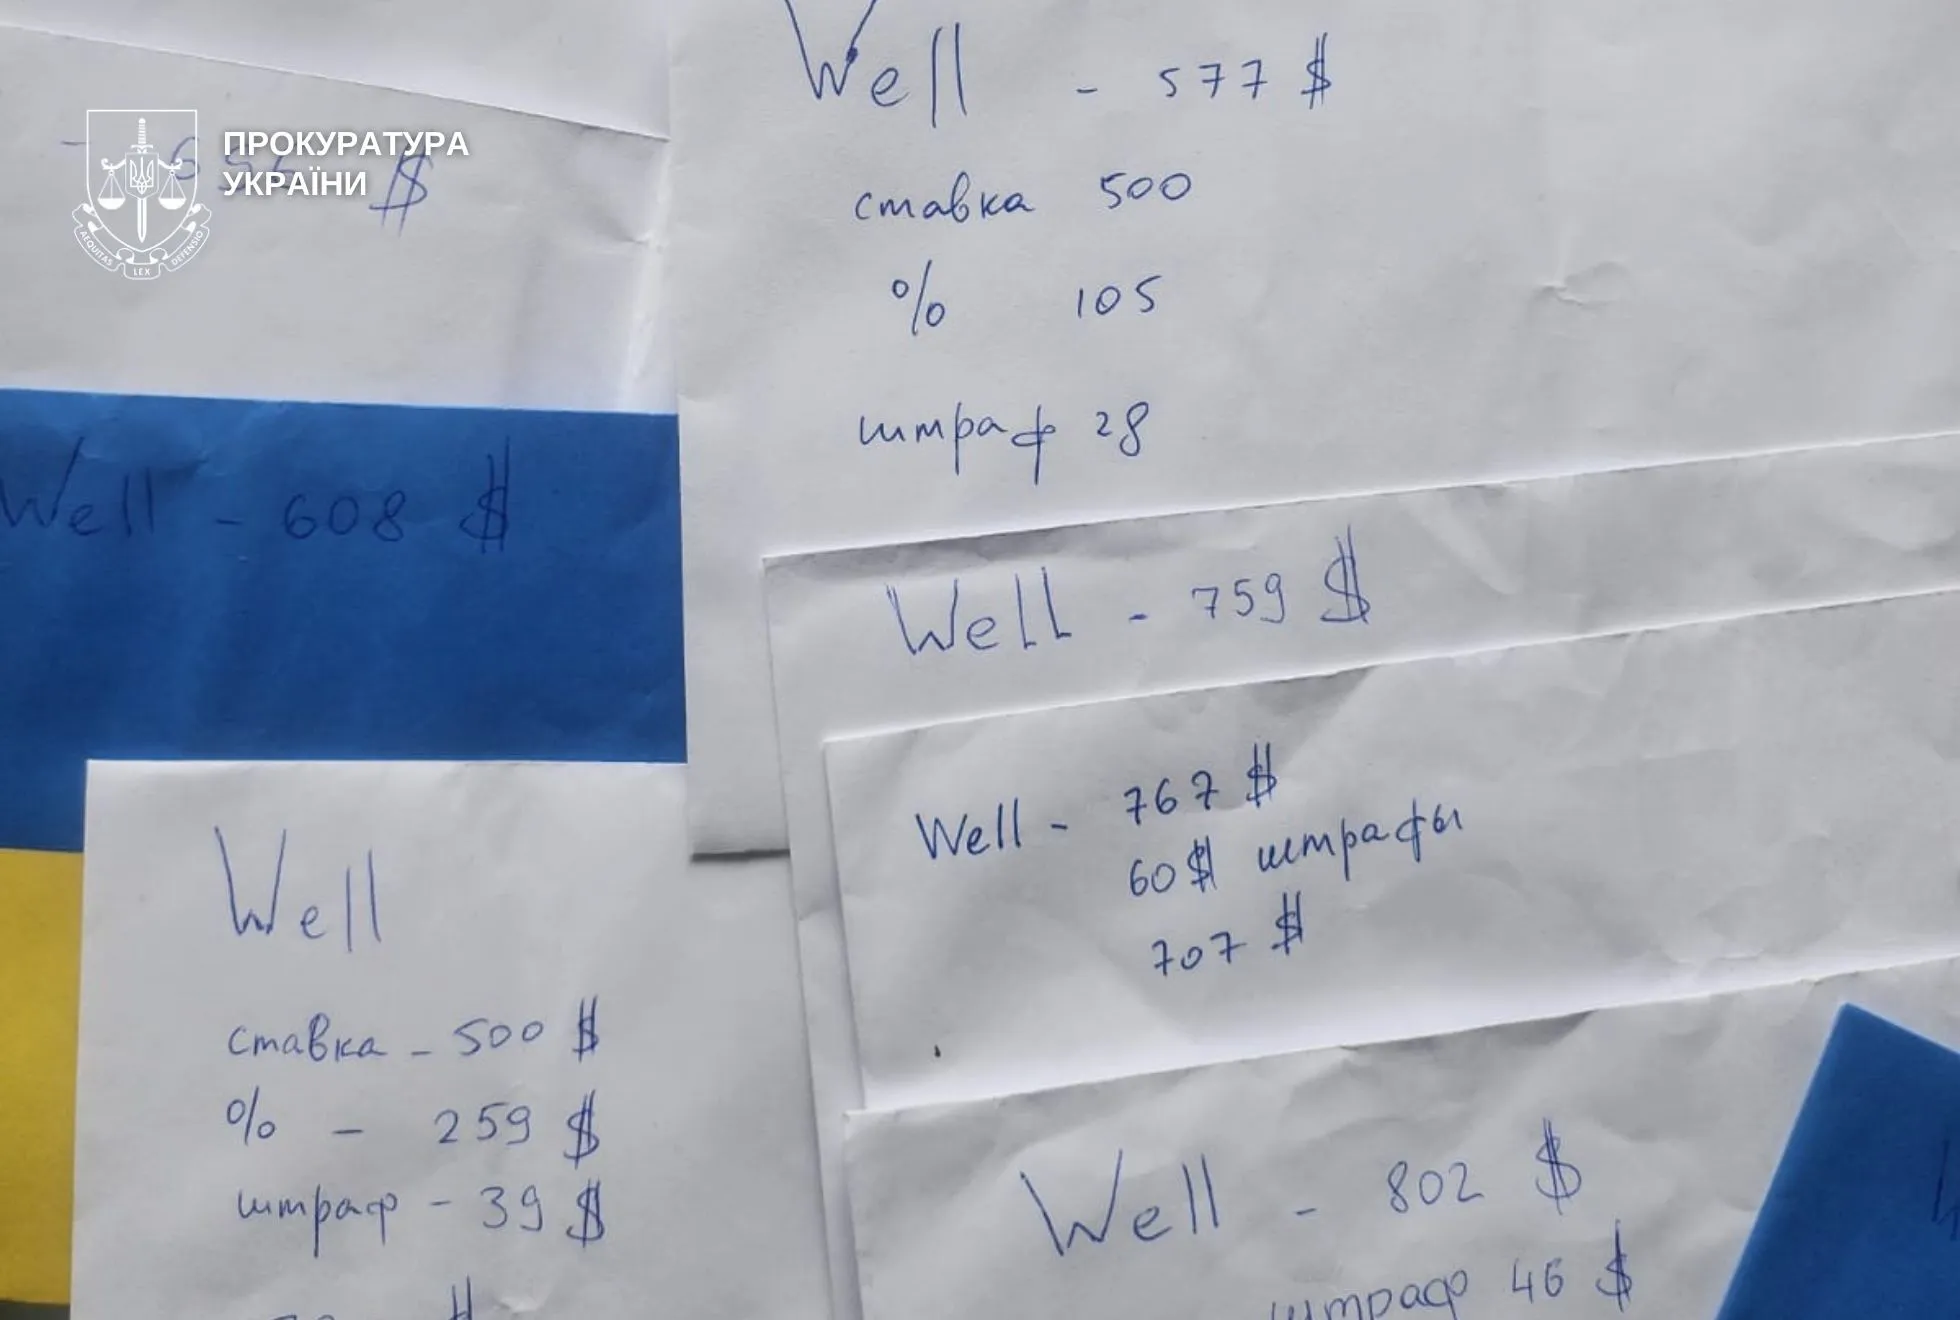 ПРОКУРАТУРА
УКРАЇНИ
AEQUITAS LEX DEFENSIO
$
Well - 577 $
ставка 500
% 105
штраф 28
Well - 608 $
Well - 759 $
Well - 767 $
60 $ штрафы
707 $
Well
ставка - 500 $
% - 259 $
штраф - 39 $
$
Well - 802 $
штраф 46 $